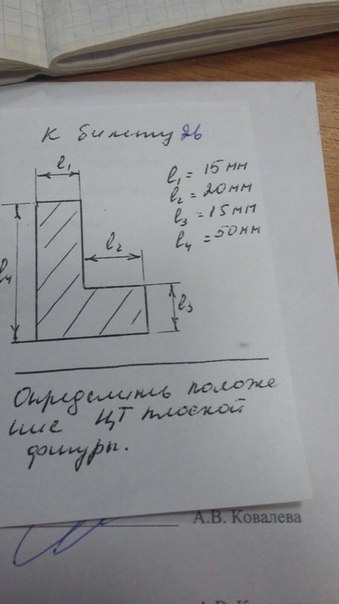 К билету 26
l₁
l₁ = 15 мм
l₂ = 20 мм
l₃ = 15 мм
l₄ = 50 мм
l₂
l₄
l₃
Определить положе
ние ЦТ плоской
фигуры.
А.В. Ковалева